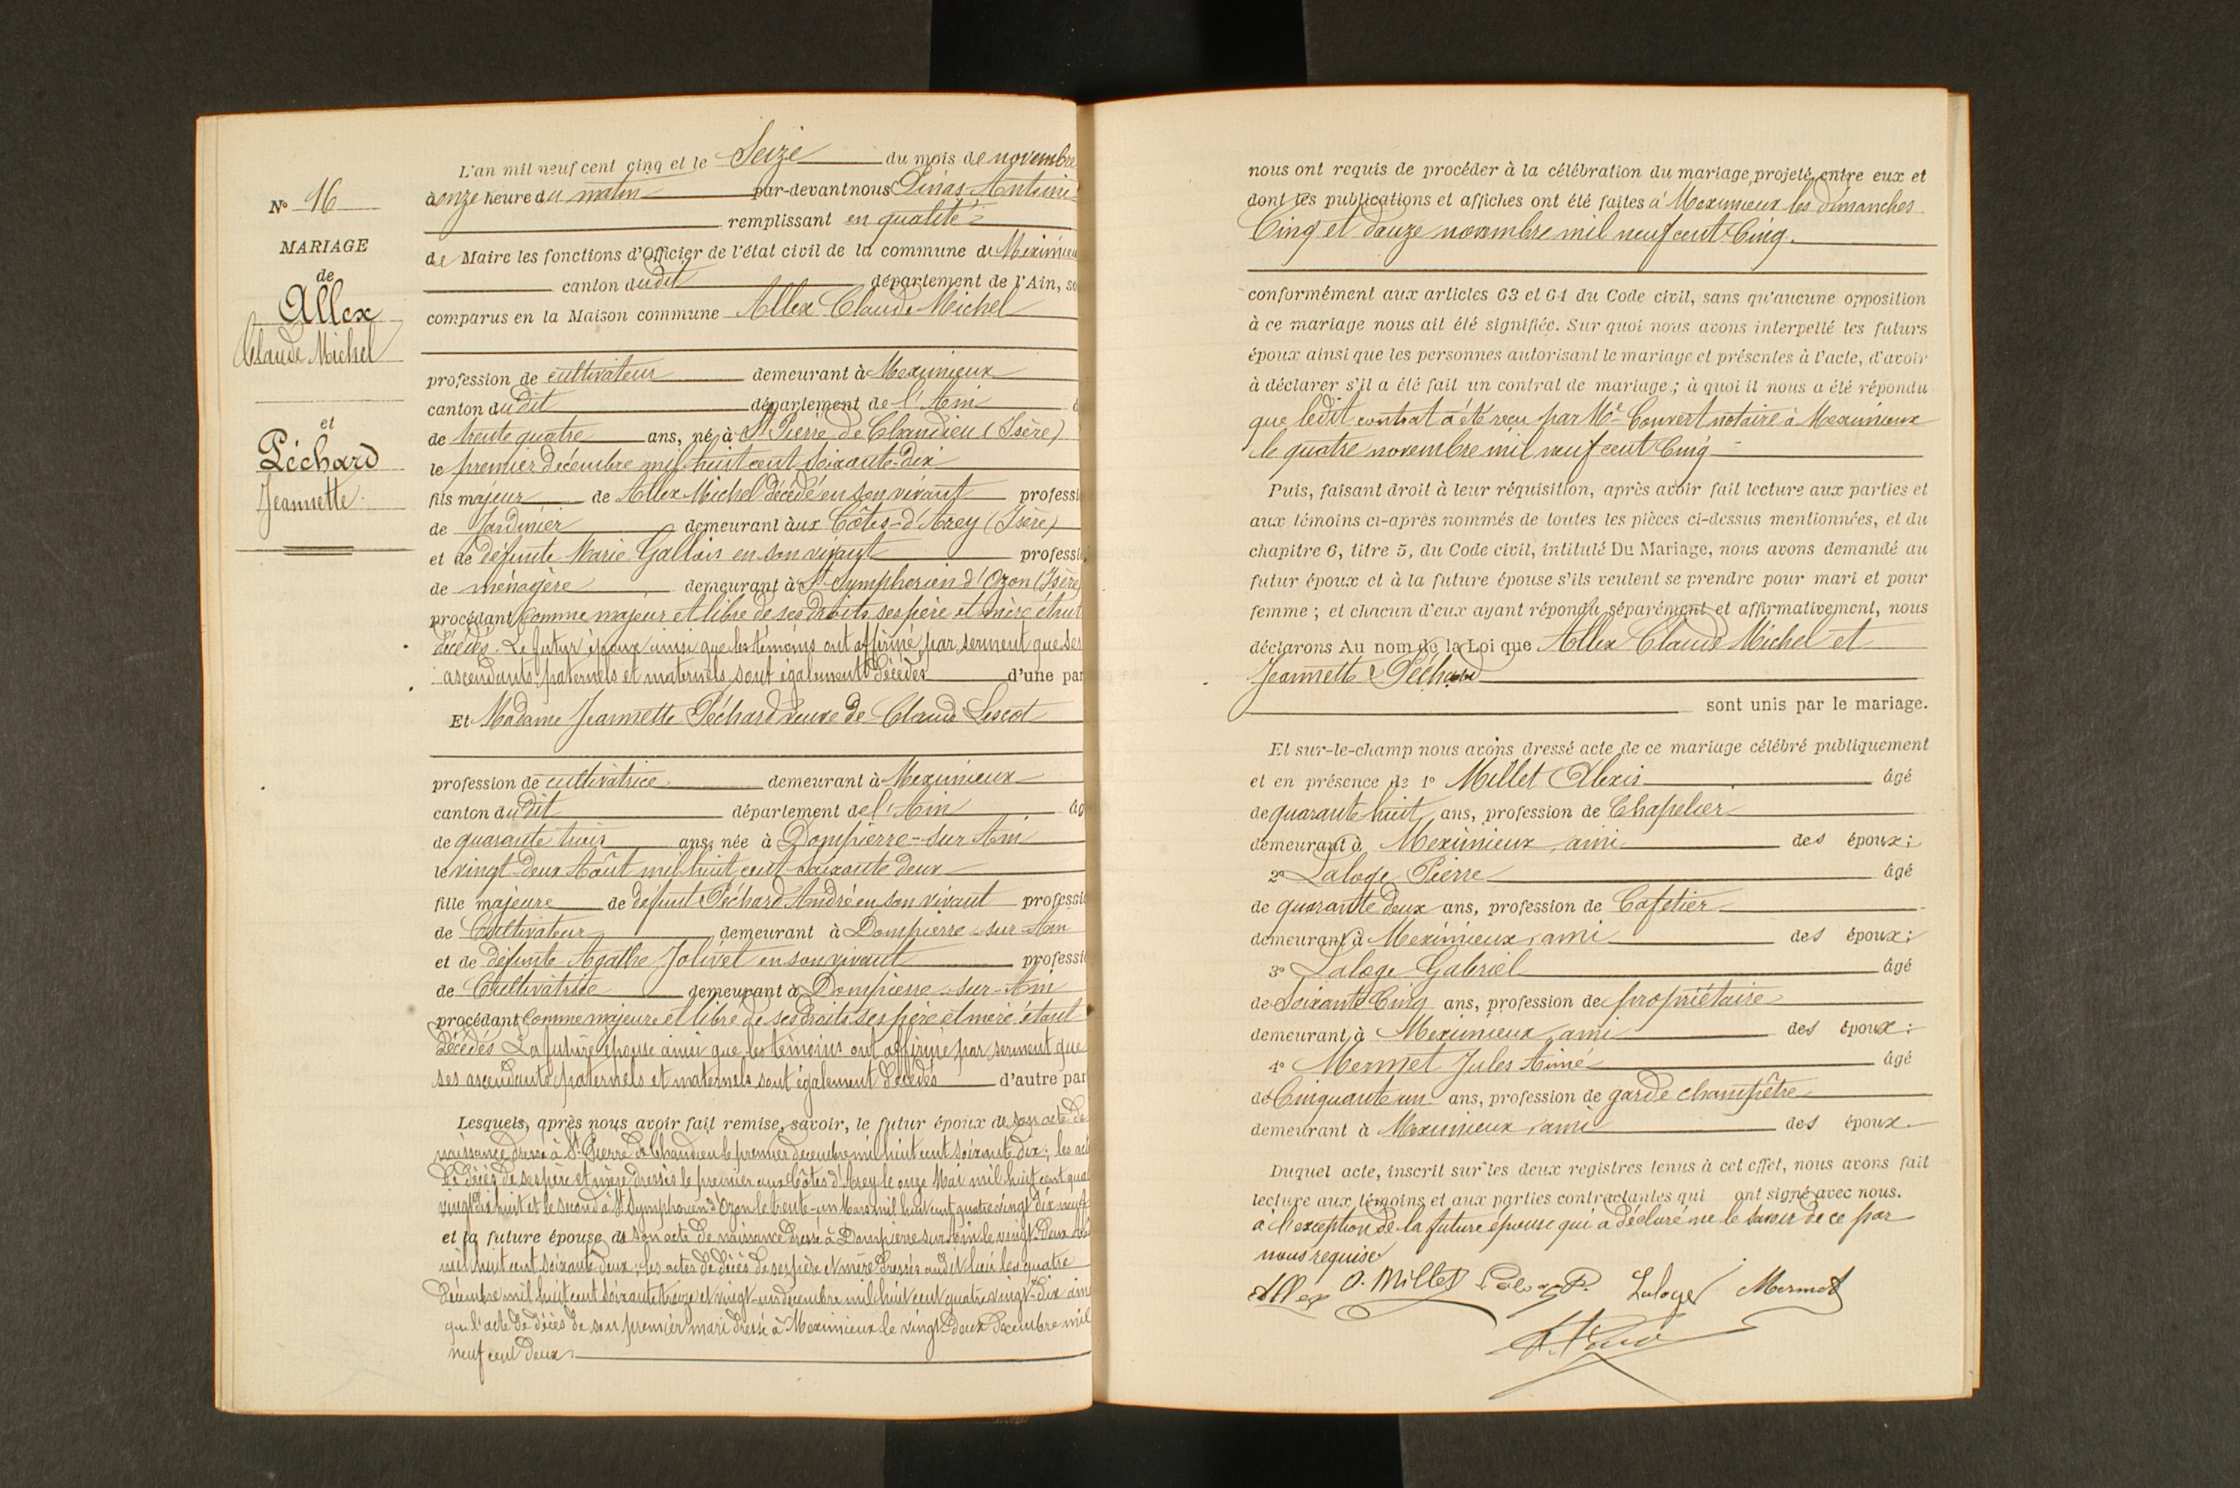 N° 16
MARIAGE
de
Allex
Claude Michel
et
Péchard
Jeannette
L'an mil neuf cent cinq et le Seize du mois de novembre
à onze heure du matin par-devant nous Antoine
remplissant en qualité
de Maire les fonctions d'Officier de l'état civil de la commune de Meximieux
canton dudit département de l'Ain, so
comparus en la Maison commune Allex Claude Michel
profession de cultivateur demeurant à Meximieux
canton dudit département de l'Ain
de trente quatre ans, né à St Pierre de Chandieu (Isère)
le premier décembre mil huit cent soixante-dix
fils majeur de Allex Michel décédé en son vivant professi
de Jardinier demeurant aux Côtes-d'Arey (Isère)
et de défunte Marie Gallais en son vivant professi
de ménagère demeurant à St Symphorien d'Ozon (Isère)
procédant comme majeur et libre de ses droits ses père et mère étant
décédés. Le futur époux ainsi que les témoins ont affirmé par serment que ses
ascendants paternels et maternels sont également décédés d'une par
Et Madame Jeannette Péchard veuve de Claude Lescot
profession de cultivatrice demeurant à Meximieux
canton dudit département de l'Ain âg
de quarante trois ans, née à Dompierre-sur-Ain
le vingt-deux Août mil huit cent soixante deux
fille majeure de défunt Péchard André en son vivant professi
de Cultivateur demeurant à Dompierre-sur-Ain
et de défunte Agathe Jolivet en son vivant professi
de Cultivatrice demeurant à Dompierre-sur-Ain
procédant comme majeure et libre de ses droits ses père et mère étant
décédés La future épouse ainsi que les témoins ont affirmé par serment que
ses ascendants paternels et maternels sont également décédés d'autre par
Lesquels, après nous avoir fait remise, savoir, le futur époux de son acte de
naissance dressé à St Pierre de Chandieu le premier décembre mil huit cent soixante dix; les act
de décès de ses père et mère dressés le premier aux Côtes d'Arey le onze Mai mil huit cent quat
vingt dix huit et le second à St Symphorien d'Ozon le trente-un Mars mil huit cent quatre vingt dix neuf
et la future épouse de son acte de naissance dressé à Dompierre sur Ain le vingt-deux
mil huit cent soixante deux; les actes de décès de ses père et mère dressés audit lieu les quatre
décembre mil huit cent soixante treize et vingt-un décembre mil huit cent quatre vingt-dix ains
que l'acte de décès de son premier mari dressé à Meximieux le vingt deux Décembre mil
neuf cent deux.
nous ont requis de procéder à la célébration du mariage projeté entre eux et
dont les publications et affiches ont été faites à Meximieux les dimanches
Cinq et douze novembre mil neuf cent Cinq.
conformément aux articles 63 et 64 du Code civil, sans qu'aucune opposition
à ce mariage nous ait été signifiée. Sur quoi nous avons interpellé les futurs
époux ainsi que les personnes autorisant le mariage et présentes à l'acte, d'avoir
à déclarer s'il a été fait un contrat de mariage; à quoi il nous a été répondu
que ledit contrat a été reçu par Me Convert notaire à Meximieux
le quatre novembre mil neuf cent Cinq
Puis, faisant droit à leur réquisition, après avoir fait lecture aux parties et
aux témoins ci-après nommés de toutes les pièces ci-dessus mentionnées, et du
chapitre 6, titre 5, du Code civil, intitulé Du Mariage, nous avons demandé au
futur époux et à la future épouse s'ils veulent se prendre pour mari et pour
femme; et chacun d'eux ayant répondu séparément et affirmativement, nous
déclarons Au nom de la Loi que Allex Claude Michel et
Jeannette Péchard
sont unis par le mariage.
Et sur-le-champ nous avons dressé acte de ce mariage célébré publiquement
et en présence de 1° Millet Alexis âgé
de quarante huit ans, profession de Chapelier
demeurant à Meximieux, ami des époux;
2° Laloge Pierre âgé
de quarante deux ans, profession de Cafetier
demeurant à Meximieux, ami des époux;
3° Laloge Gabriel âgé
de Soixante Cinq ans, profession de propriétaire
demeurant à Meximieux, ami des époux;
4° Mermet Jules Aimé âgé
de Cinquante un ans, profession de garde champêtre
demeurant à Meximieux, ami des époux.
Duquel acte, inscrit sur les deux registres tenus à cet effet, nous avons fait
lecture aux témoins et aux parties contractantes qui ont signé avec nous.
à l'exception de la future épouse qui a déclaré ne le savoir de ce par
nous requise
Allex A. Millet Laloge P. Laloge Mermet